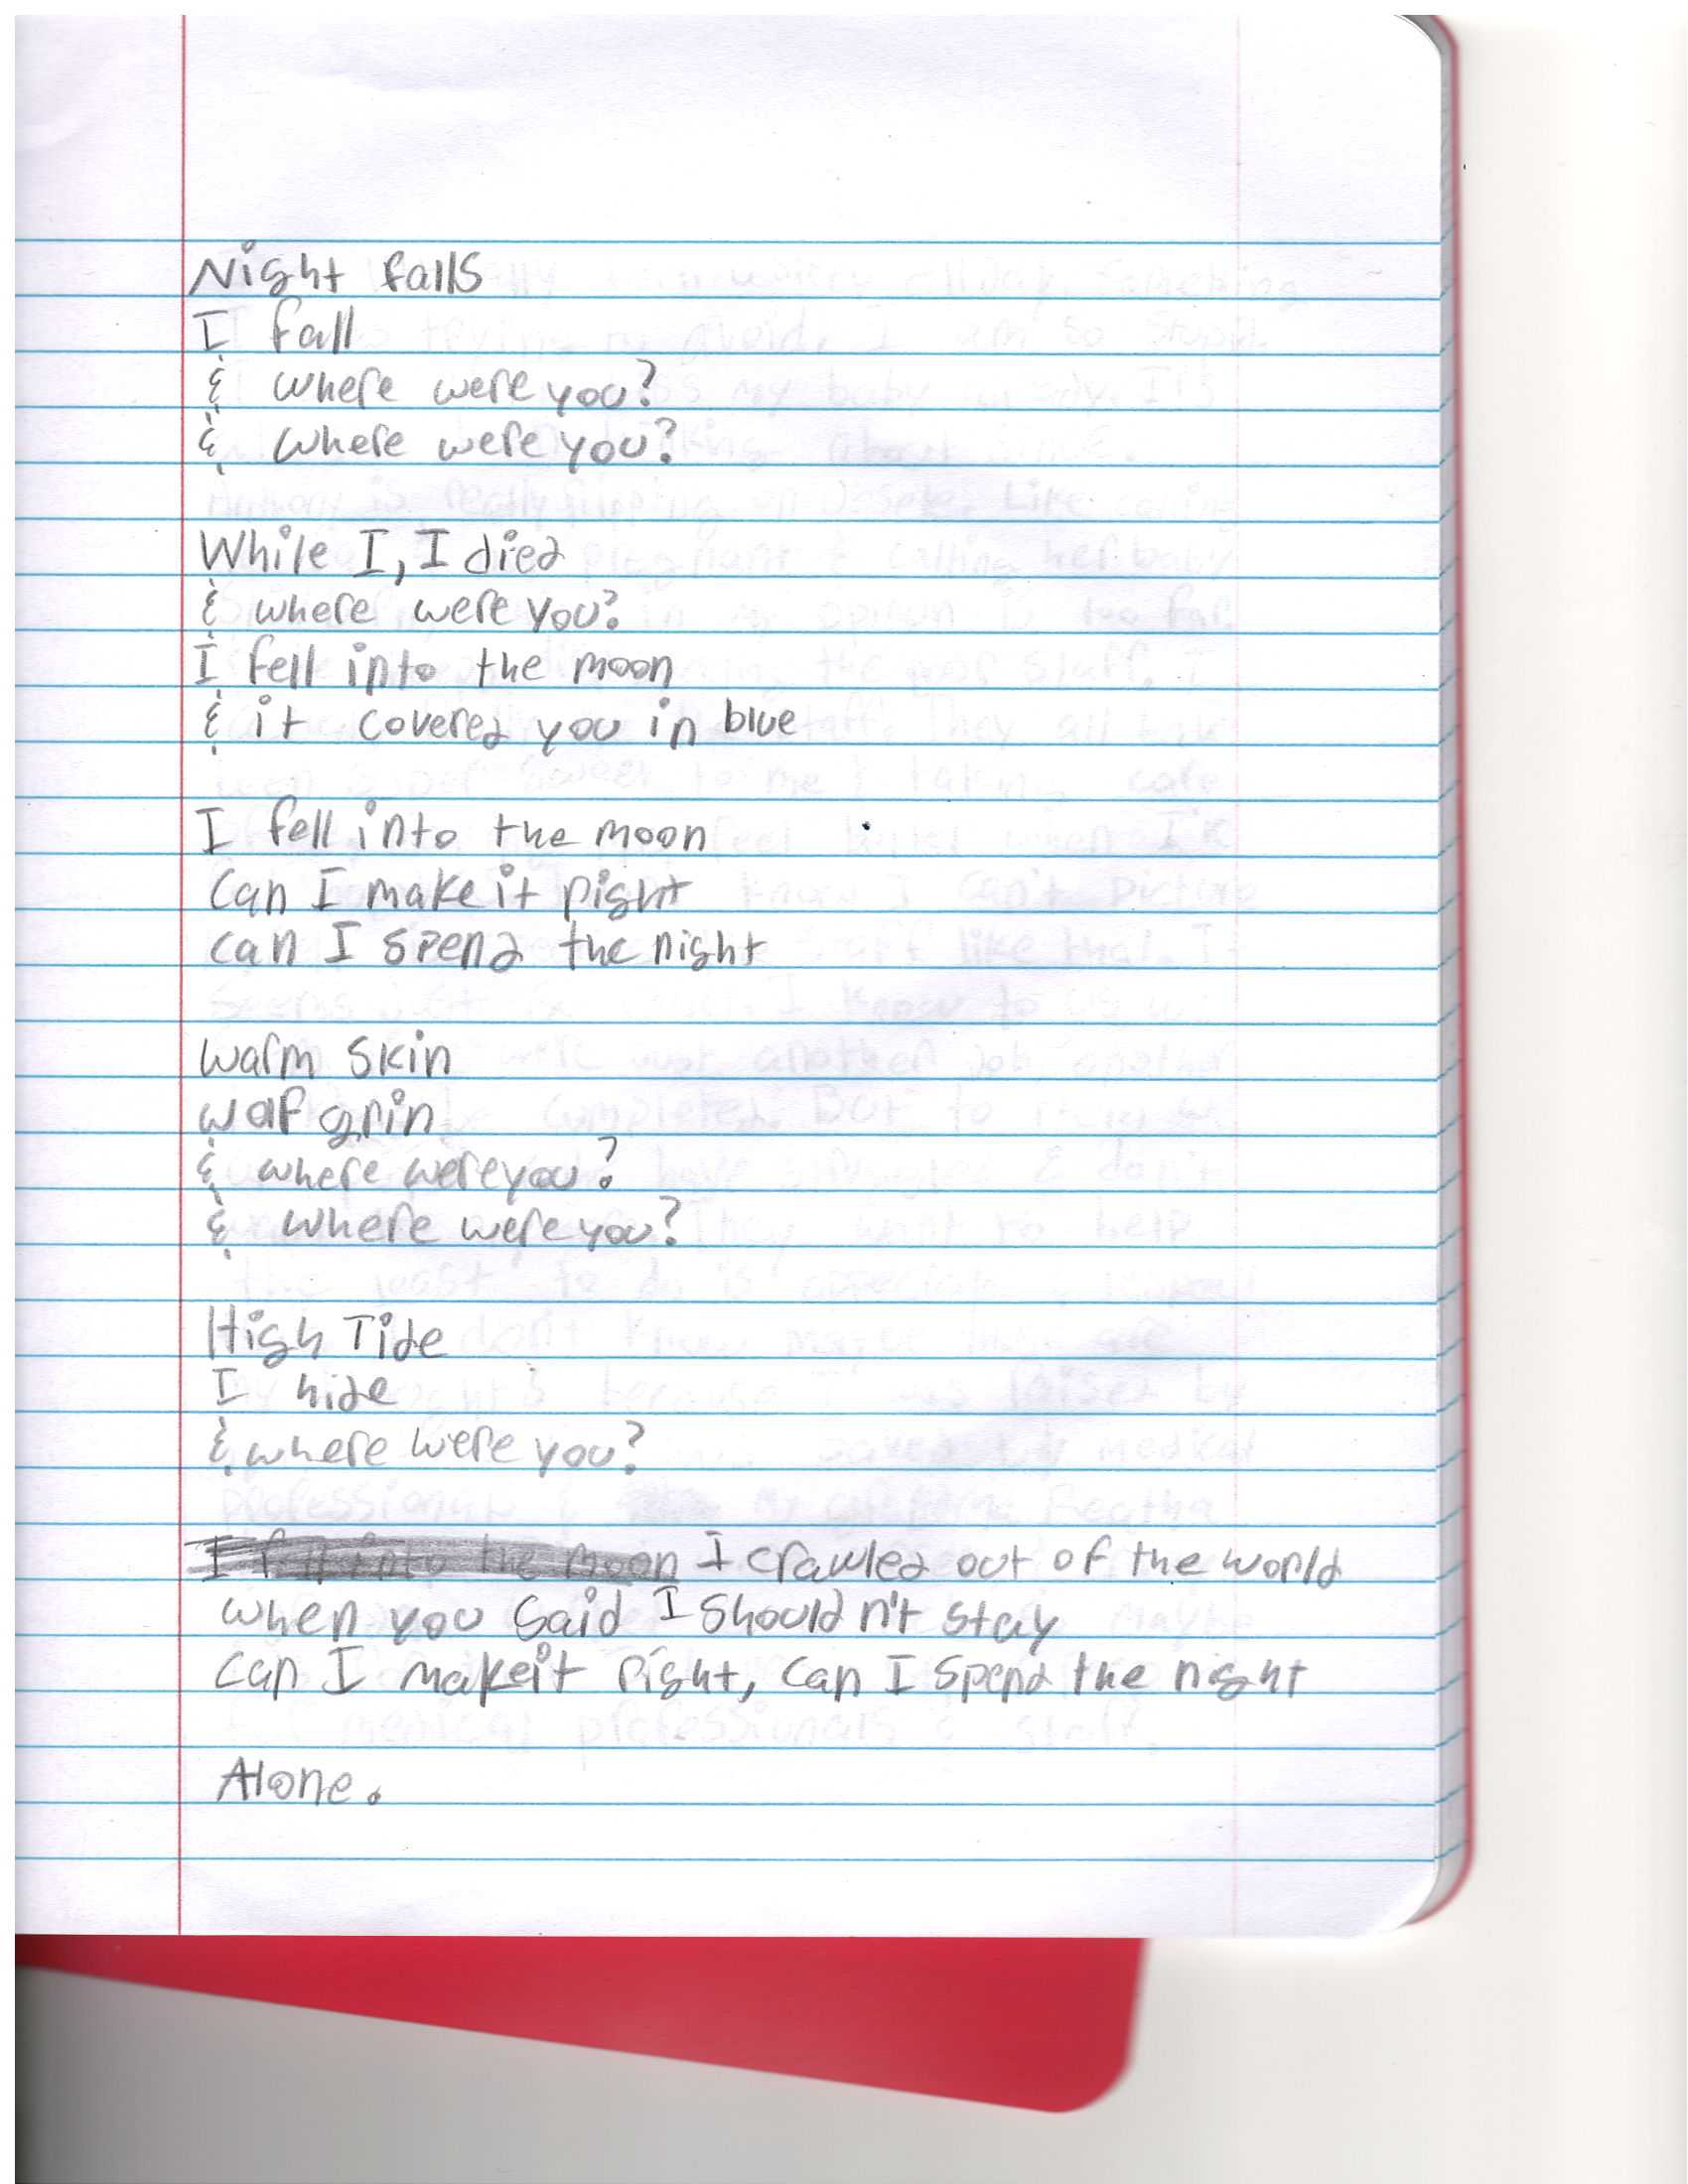 Night falls
I fall
& where were you?
& where were you?
While I, I died
& where were you?
I fell into the moon
& it covered you in blue
I fell into the moon
Can I make it right
can I spend the night
warm skin
waf grin
& where were you?
& where were you?
High Tide
I hide
& where were you?
I fell into the moon I crawled out of the world
when you said I shouldn't stay
can I make it right, can I spend the night
Alone.